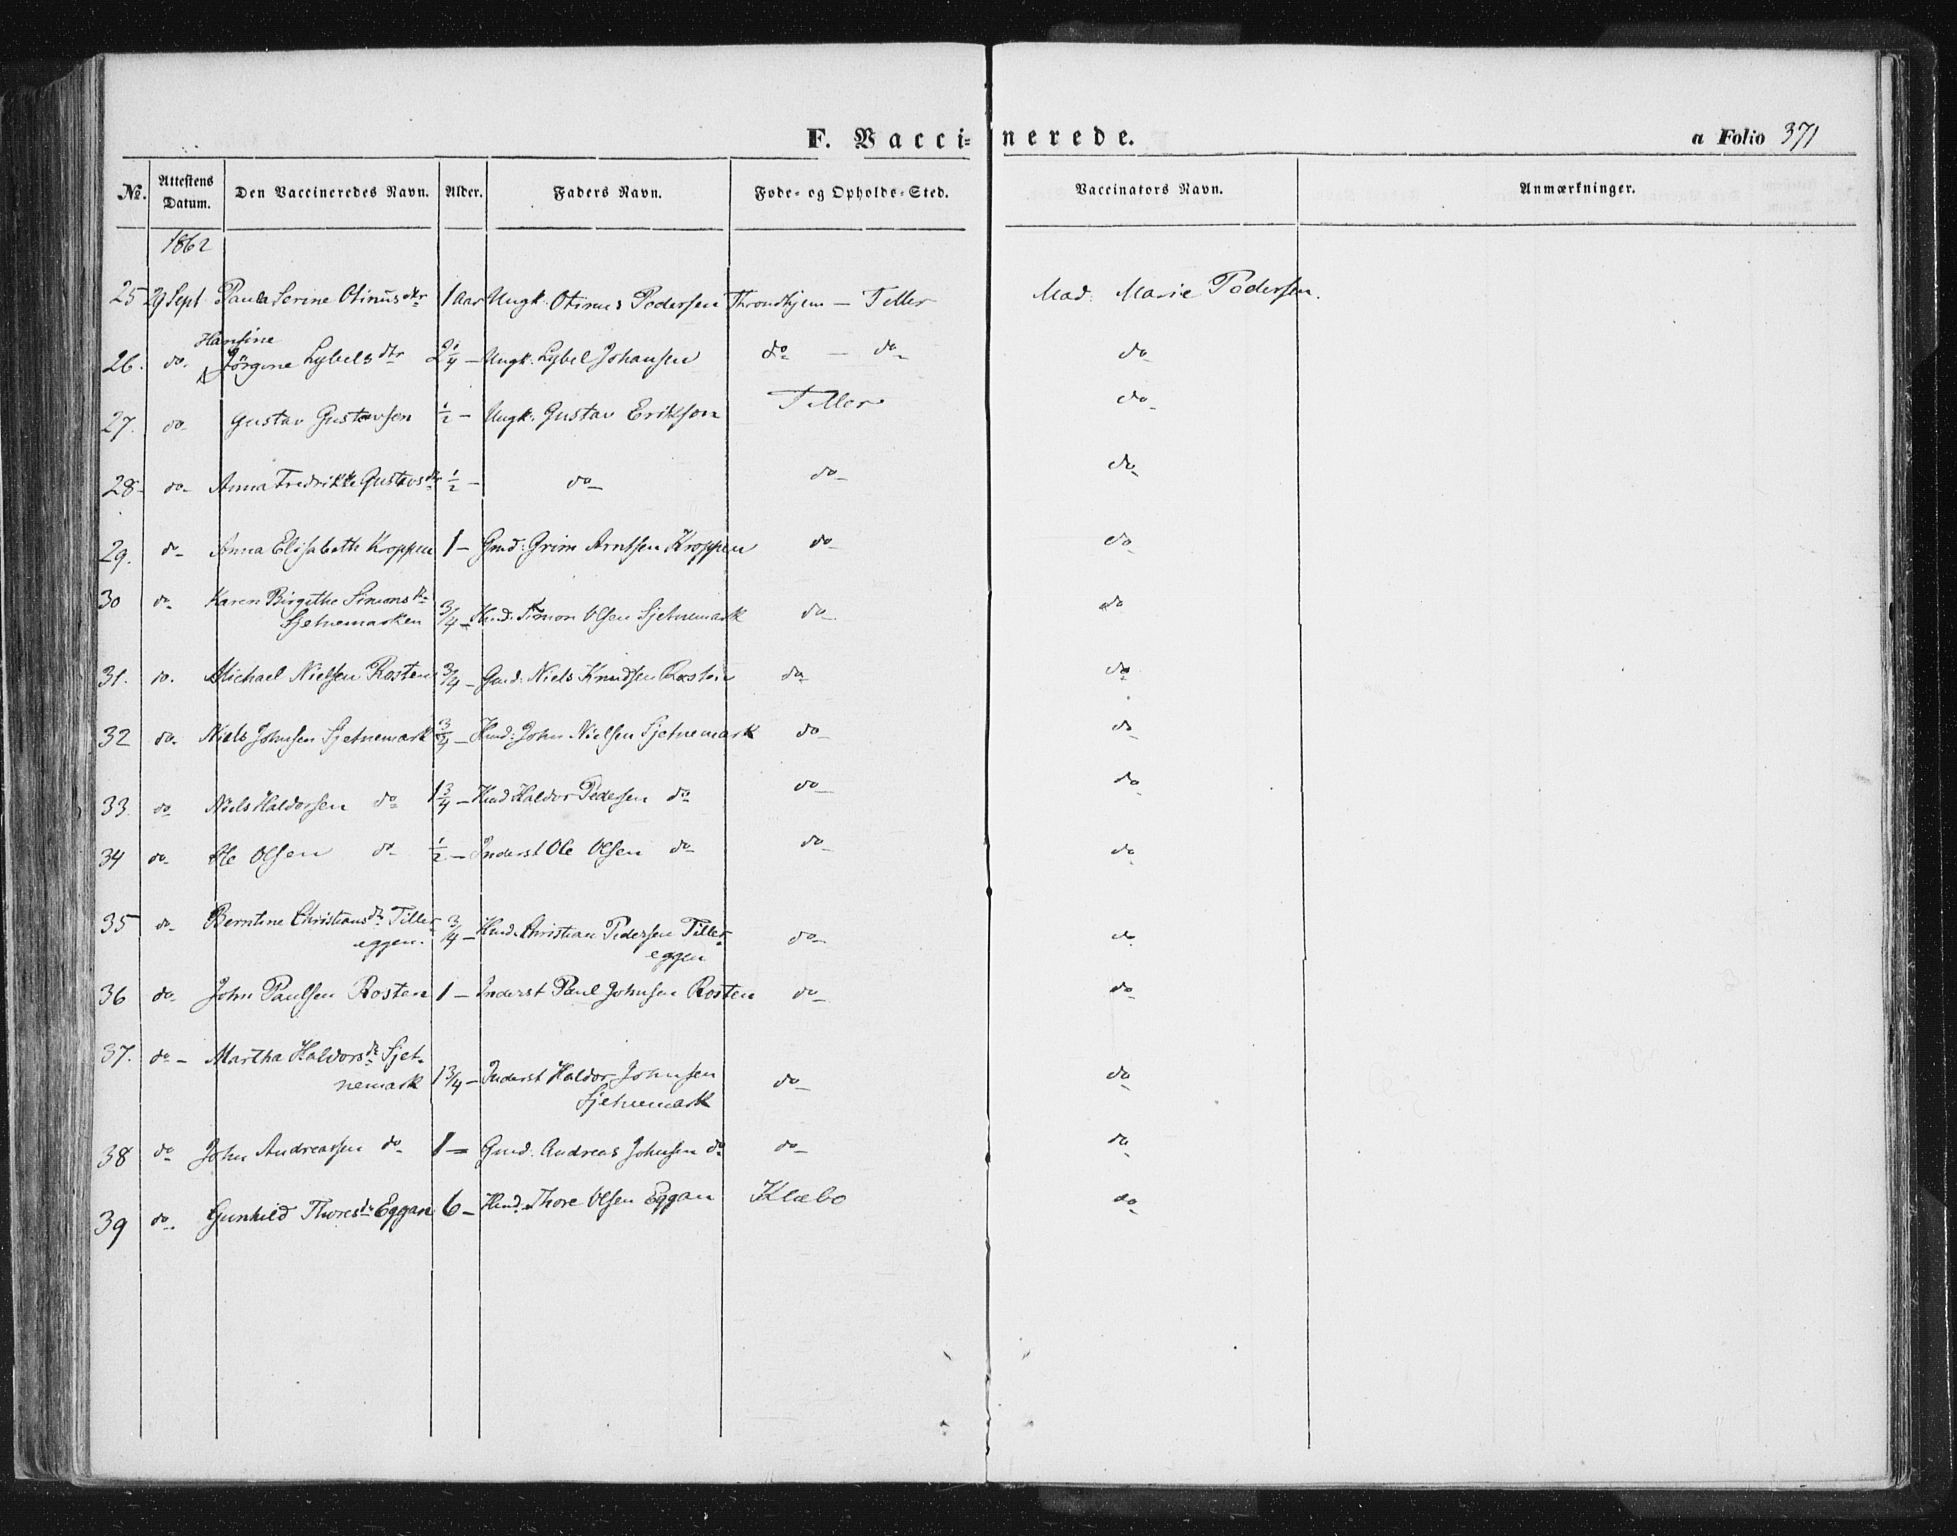 F. Vaccinerede. a Folio 371
No. Attestens Datum. Den Vaccineredes Navn. Alder. Faders Navn. Føde- og Opholds-Sted. Vaccinators Navn. Anmærkninger.
1862
25 29 Sept Paula Serine Otinusdtr 1 Aar Ungk. Otinus Pedersen Throndhjem - Tiller Mad. Marie Pedersen.
Hansine
26. do. Jörgine Lybelsdtr 2 1/4 - Ungk. Lybel Johansen do - do do
27. do Gustav Gustavsen 1/2 - Ungk. Gustav Erikson Tiller do
28 do Anna Fredrikke Gustavsdtr 1/2 - do do do
29. do Anna Elisabeth Kroppen 1 - Gmd: Grim Arntsen Kroppen do do
30 do Karen Birgithe Simonsdr
Sjetnemarken 3/4 - Hmd. Simon Olsen Sjetnemark do do
31. do. Michael Nielsen Rosten 3/4 - Gmd: Niels Knudsen Rosten do do
32 do. Niels Johnsen Sjetnemark 3/4 - Hmd: John Nielsen Sjetnemark do do
33. do Niels Haldorsen do 1 3/4 - Hmd Haldor Pedersen do do do
34 do Ole Olsen do 1/2 - Inderst Ole Olsen do do do
35 do Berntine Christiansdr Tiller-
eggen. 3/4 - Hmd. Christian Pedersen Tiller-
eggen do do
36 do John Paulsen Rosten 1 - Inderst Paul Johnsen Rosten do do
37. do - Martha Haldorsdr Sjet-
nemark 1 3/4 - Inderst Haldor Johnsen
Sjetnemark do do
38 do John Andreassen do 1 - Gmd. Andreas Johnsen do do do
39 do Gunhild Thoresdr Eggan 6 - Hmd. Thore Olsen Eggan Klæbo do